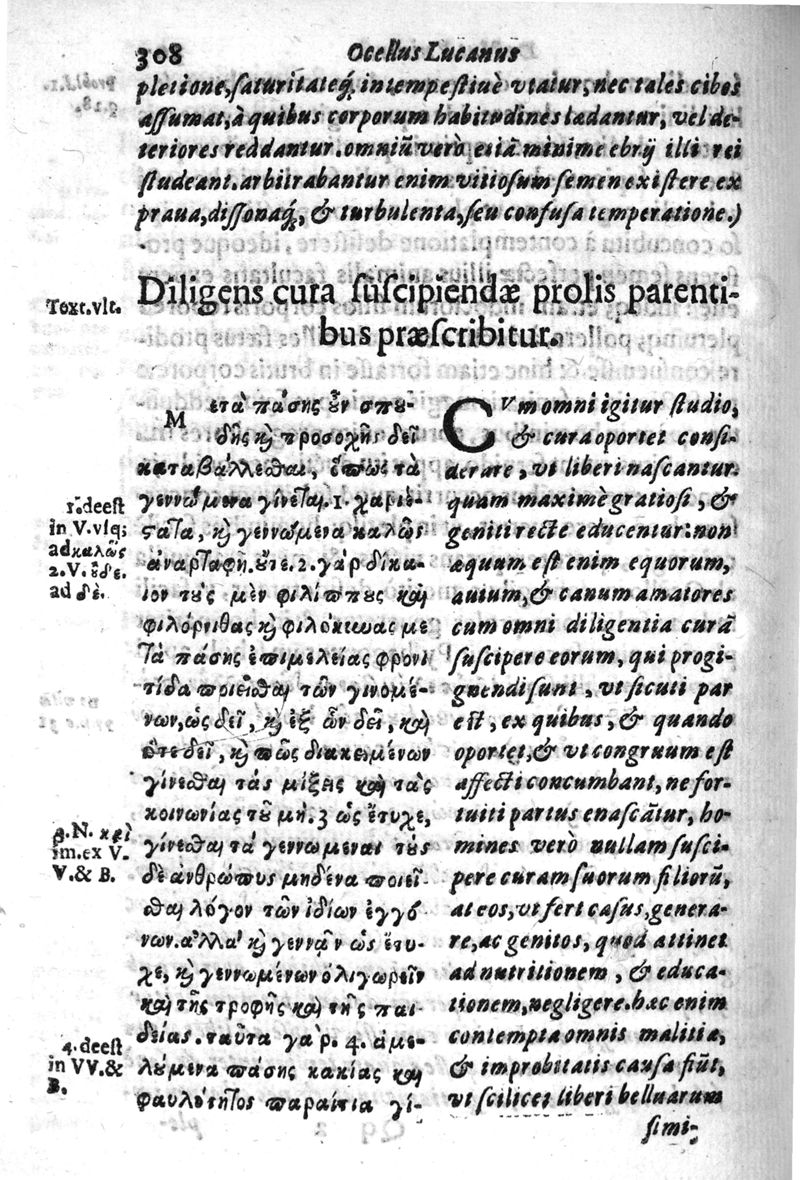 308 Ocellus Lucanus
pletione, saturitateq́, intempestiuè vtatur, nec tales cibos
assumat, à quibus corporum habitudines lædantur, vel de-
teriores reddantur. omniũ verò etiã minime ebrij illi rei
studeant. arbitrabantur enim vitiosum semen existere ex
praua, dissonaq́, & turbulenta, seu confusa temperatione.)
Text. vlt.
Diligens cura suscipiendæ prolis parenti-
bus præscribitur.
Μετὰ πάσης ὖν σπου-
δῆς κὶ προσοχῆς δεῖ
καταβάλλεσθαι, ὅπως τὰ
γεννώμενα γίνεται. 1. χαριέ-
στατα, κὶ γεννώμενα καλῶς
ἀνατραφῆ. οὔτε. 2. γάρ δίκα-
ιον τοὺς μὲν φιλίππους καὶ
φιλόρνιθας κὶ φιλόκυνας με
τὰ πάσης ἐπιμελείας φρονι
τίδα ποιεῖσθαι τῶν γινομέ-
νων, ὡς δεῖ, κὶ ἐξ ὧν δεῖ, καὶ
ὅτε δεῖ, κὶ πῶς διακειμένων
γίνεσθαι τάς μίξεις καὶ τὰς
κοινωνίας τοῦ μή. 3 ὡς ἔτυχε,
γίνεσθαι τὰ γεννώμεναι τοὺς
δὲ ἀνθρώπους μηδένα ποιεῖ-
σθαι λόγον τῶν ἰδίων ἐγγό
νων. ἀλλὰ κὶ γεννᾷν ὡς ἔτυ-
χε, κὶ γεννωμένων ὀλιγωρεῖν
καὶ τῆς τροφῆς καὶ τῆς παι-
δείας. ταῦτα γάρ. 4. ἀμε-
λούμενα πάσης κακίας καὶ
φαυλότητος παραίτια γί-
1. deest
in V. vsq;
ad καλῶς
2. V. οὐδὲ.
ad δὲ.
3. N. καὶ
im. ex V.
V. & B.
4. deest
in VV. &
B.
CVm omni igitur studio,
& cura oportet consi-
derare, vt liberi nascantur
quam maximè gratiosi, &
geniti recte educentur: non
æquum est enim equorum,
auium, & canum amatores
cum omni diligentia curã
suscipere eorum, qui progi-
gnendi sunt, vt sicuti par
est, ex quibus, & quando
oportet, & vt congruum est
affecti concumbant, ne for-
tuiti partus enascãtur, ho-
mines verò nullam susci-
pere curam suorum filiorũ,
at eos, vt fert casus, genera-
re, ac genitos, quod attinet
ad nutritionem, & educa-
tionem, negligere. hæc enim
contempta omnis malitiæ,
& improbitatis causa fiũt,
vt scilicet liberi belluarum
simi-